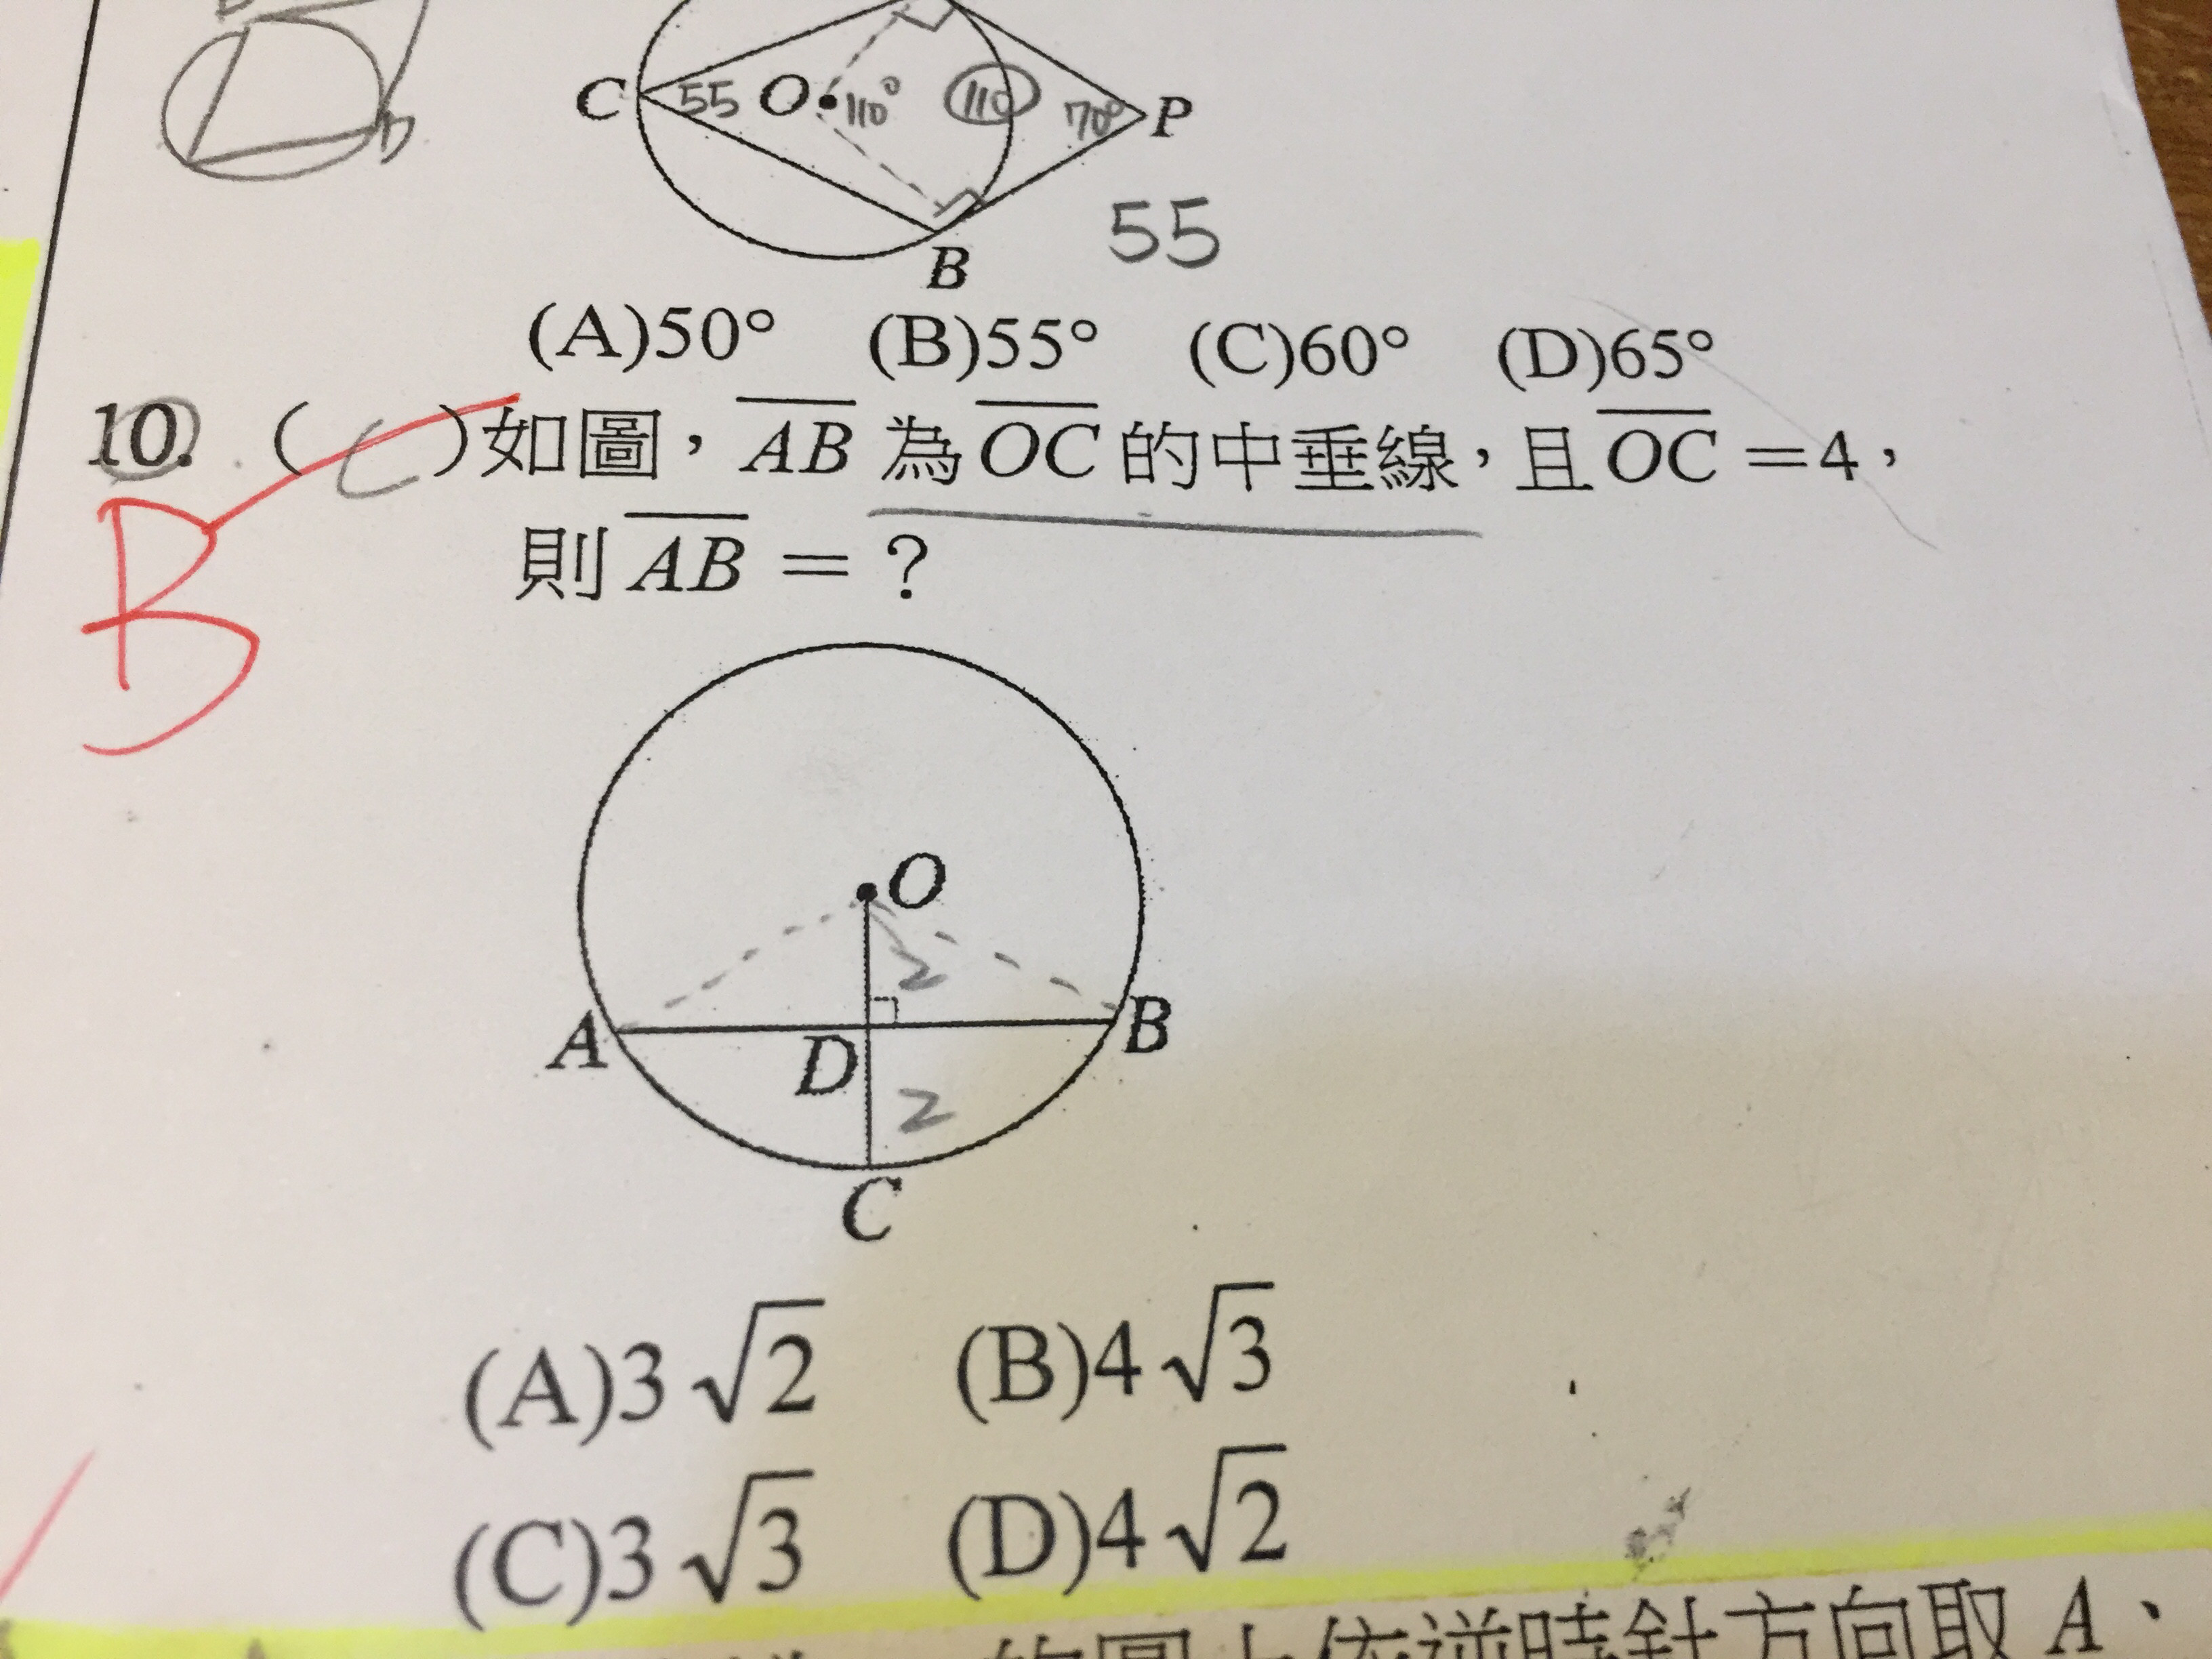 C 55 O 110° 110 70° P
B 55
(A)50° (B)55° (C)60° (D)65°
10. ( C )如圖，AB 為 OC 的中垂線，且 OC =4，
B
則 AB = ？
O
2
A D B
2
C
(A)3√2 (B)4√3
(C)3√3 (D)4√2
的圓上依逆時針方向取 A、